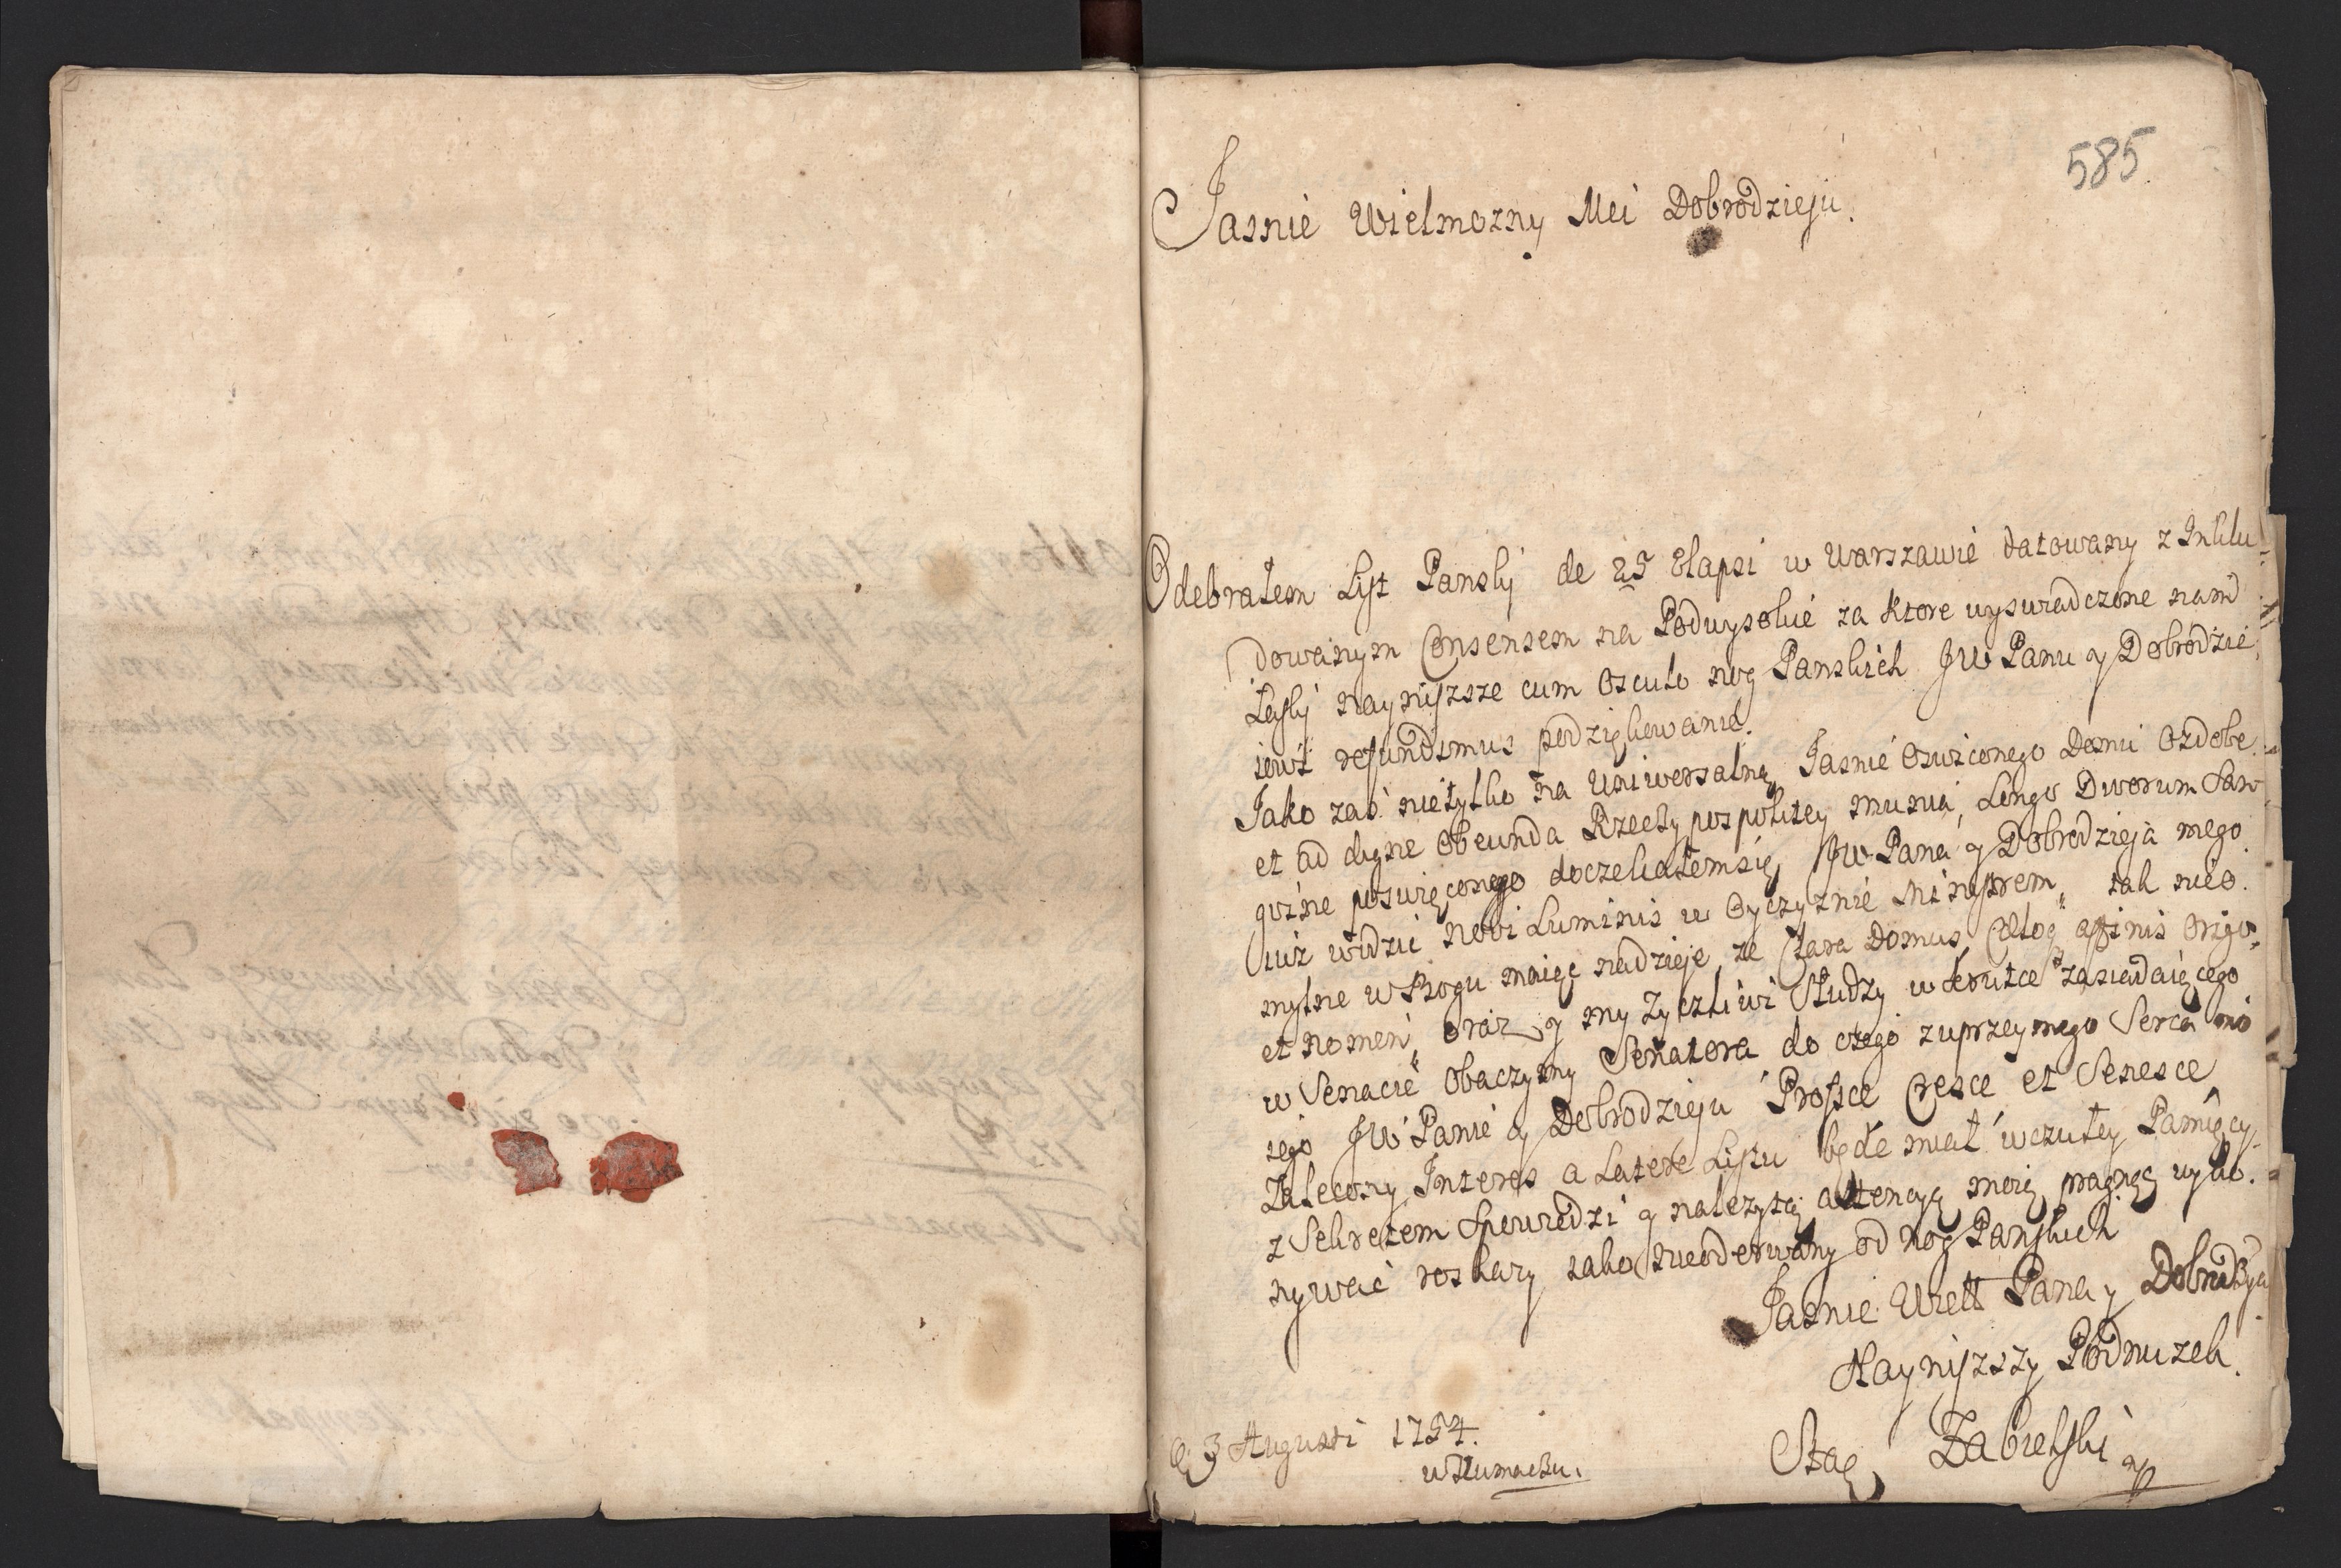 585
Jasnie Wielmozny Mci Dobrodzieju.
Odebrałem List Panski de 25 Elapsi w Warszawie datowany z Inklu-
dowanym Consensem na Podwysokie za ktore wyswiadczone nam
Łaski nayniższe cum Osculo nog Panskich JW Panu y Dobrodzie-
iowi refundimus podziękowanie.
Jako zas nietylko na Uniwersalną Jasnie Oswiconego Domu Ozdobę
et ad digne Obeunda Rzeczypospolitey munia, Longo Dworum San-
guine poswięconego doczekałemsię JW Pana y Dobrodzieja mego
iuż widzic Novi Luminis w Oyczyznie Ministrem, tak nieo-
mylne w Bogu maięc nadzieje, ze Clara Domus, Celog affinis Origo
et nomen, oraz y my Zyczliwi Słudzy w krutce zasiadaięcego
w Senacie Obaczymy Senatora do czego zuprzeymego Serca mo
iego JW Panie y Dobrodzieju Profice Cresce et Senesce
Zalecony Interes a Latere Listu będe miał w czułey Pamięcy
z Sekretem Spowiedzi y nalezytą attencyą moią pragnę wyko-
nywać roskazy iako nieoderwany od nog Panskich
Jasnie Wiell Pana y Dobrodzieja
Nayniższy Podnuzek
D 3 Augusti 1754.
w Tłumaczu.
Zabielski mp